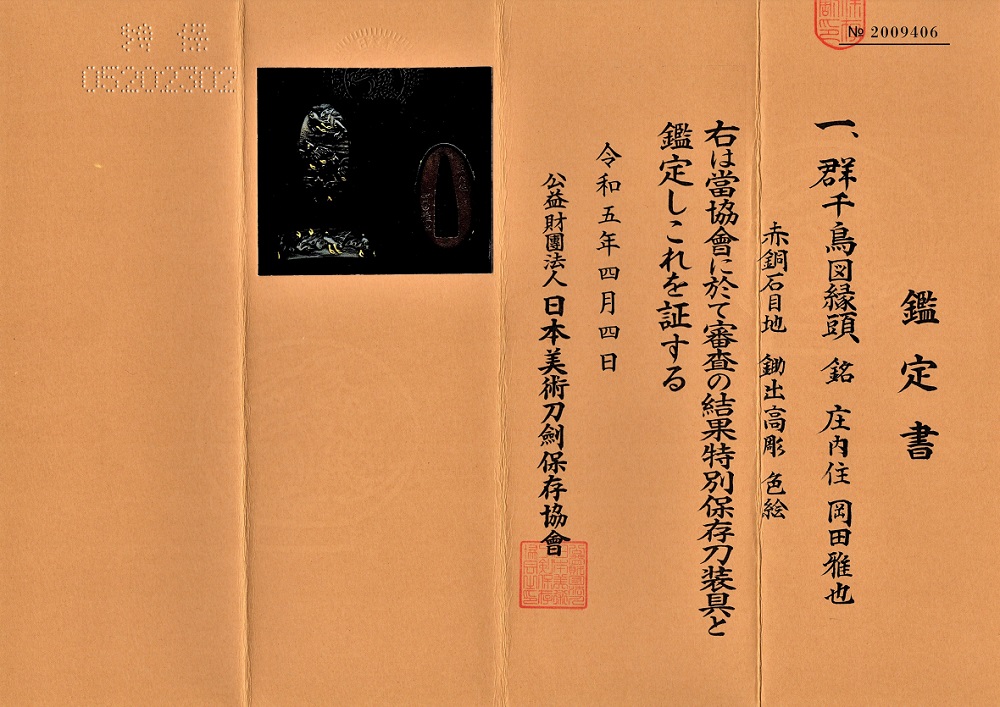 № 2009406
鑑定書
一、群千鳥図縁頭 銘 庄内住 岡田雅也
赤銅石目地 鋤出高彫 色絵
右は當協會に於て審査の結果特別保存刀装具と
鑑定しこれを証する
令和五年四月四日
公益財團法人日本美術刀劍保存協會
05202302